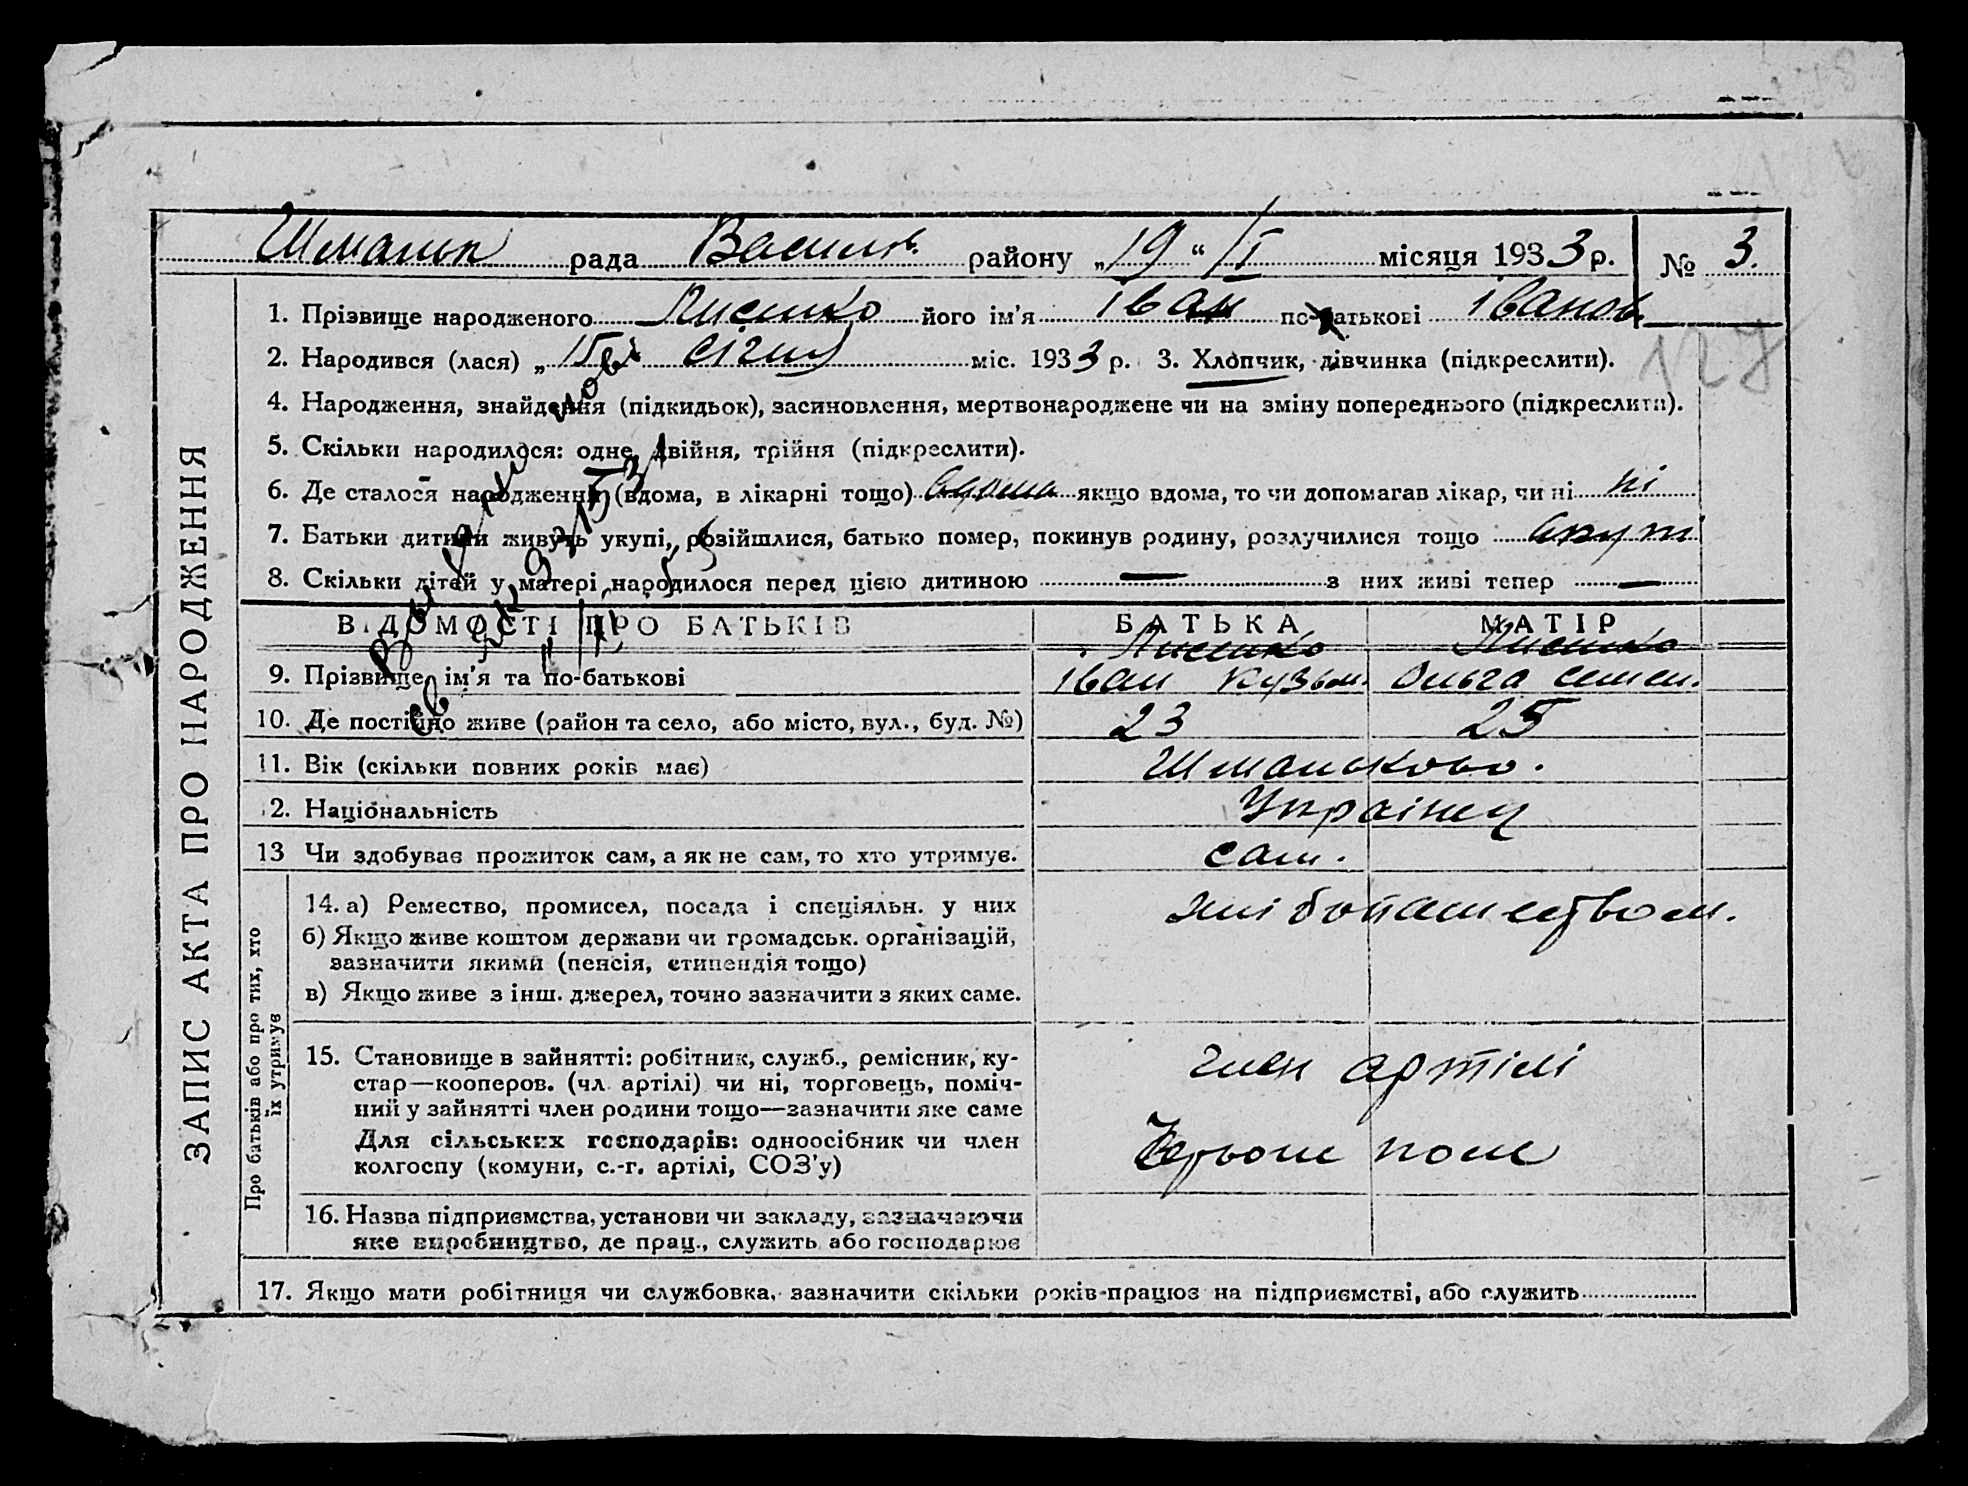 Шмальк рада Василь. району „19“ /I місяця 1933 р. № 3.
1. Прізвище народженого Лисенко його ім'я Іван по батькові Іванов.
127
2. Народився (лася) „15“ січня міс. 1933 р. 3. Хлопчик, дівчинка (підкреслити).
4. Народження, знайдення (підкидьок), засиновлення, мертвонароджене чи на зміну попереднього (підкреслити).
5. Скільки народилося: одне, двійня, трійня (підкреслити).
6. Де сталося народження (вдома, в лікарні тощо) вдома якщо вдома, то чи допомагав лікар, чи ні ні
7. Батьки дитини живуть укупі, розійшлися, батько помер, покинув родину, розлучилися тощо вкупі
8. Скільки дітей у матері народилося перед цією дитиною — з них живі тепер —
ВІДОМОСТІ ПРО БАТЬКІВ БАТЬКА МАТІР
Лисенко Лисенко
9. Прізвище, ім'я та по-батькові Іван Кузьм. Ольга Семен.
10. Де постійно живе (район та село, або місто, вул., буд. №) 23 25
11. Вік (скільки повних років має) Шмальково.
12. Національність Українец
13 Чи здобуває прожиток сам, а як не сам, то хто утримує. сам.
14. а) Ремество, промисел, посада і спеціяльн. у них хліборобством.
б) Якщо живе коштом держави чи громадськ. організацій,
зазначити якими (пенсія, стипендія тощо)
в) Якщо живе з інш. джерел, точно зазначити з яких саме.
15. Становище в зайнятті: робітник, служб., ремісник, ку-
стар—кооперов. (чл. артілі) чи ні, торговець, поміч- член артілі
ний у зайнятті член родини тощо—зазначити яке саме
Для сільських господарів: одноосібник чи член Червоне поле
колгоспу (комуни, с.-г. артілі, СОЗ'у)
16. Назва підприємства, установи чи закладу, зазначаючи
яке виробництво, де прац., служить або господарює
17. Якщо мати робітниця чи службовка, зазначити скільки років працює на підприємстві, або служить
ЗАПИС АКТА ПРО НАРОДЖЕННЯ
Про батьків або про тих, хто
їх утримує